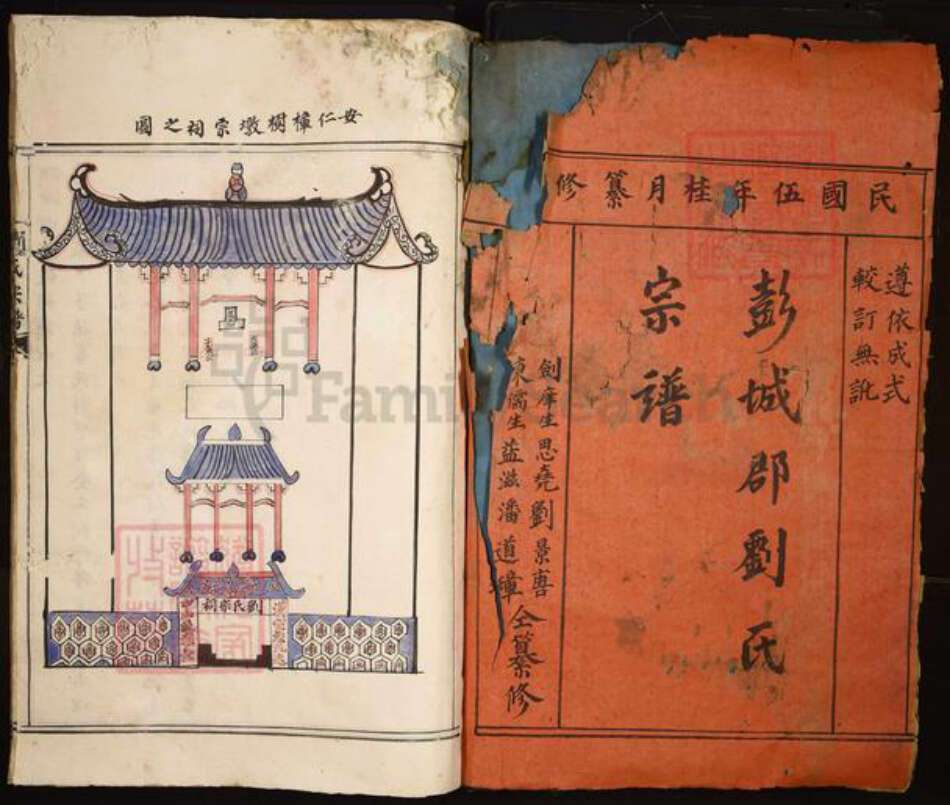 民國伍年桂月纂修
遵依成式
較訂無訛
彭城郡劉氏
宗譜
劍庠生思堯劉景書
儒生益滋潘道璋
仝纂修
安仁樟樹墩宗祠之圖
劉氏宗祠
FamilySearch